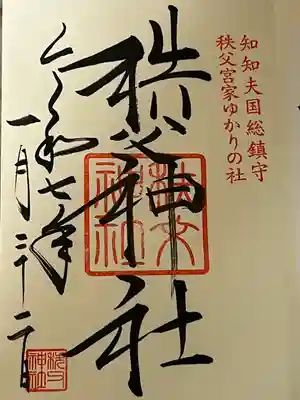 知知夫国総鎮守
秩父宮家ゆかりの社
秩父神社
秩父神社
令和七年
一月二十二日
秩父神社